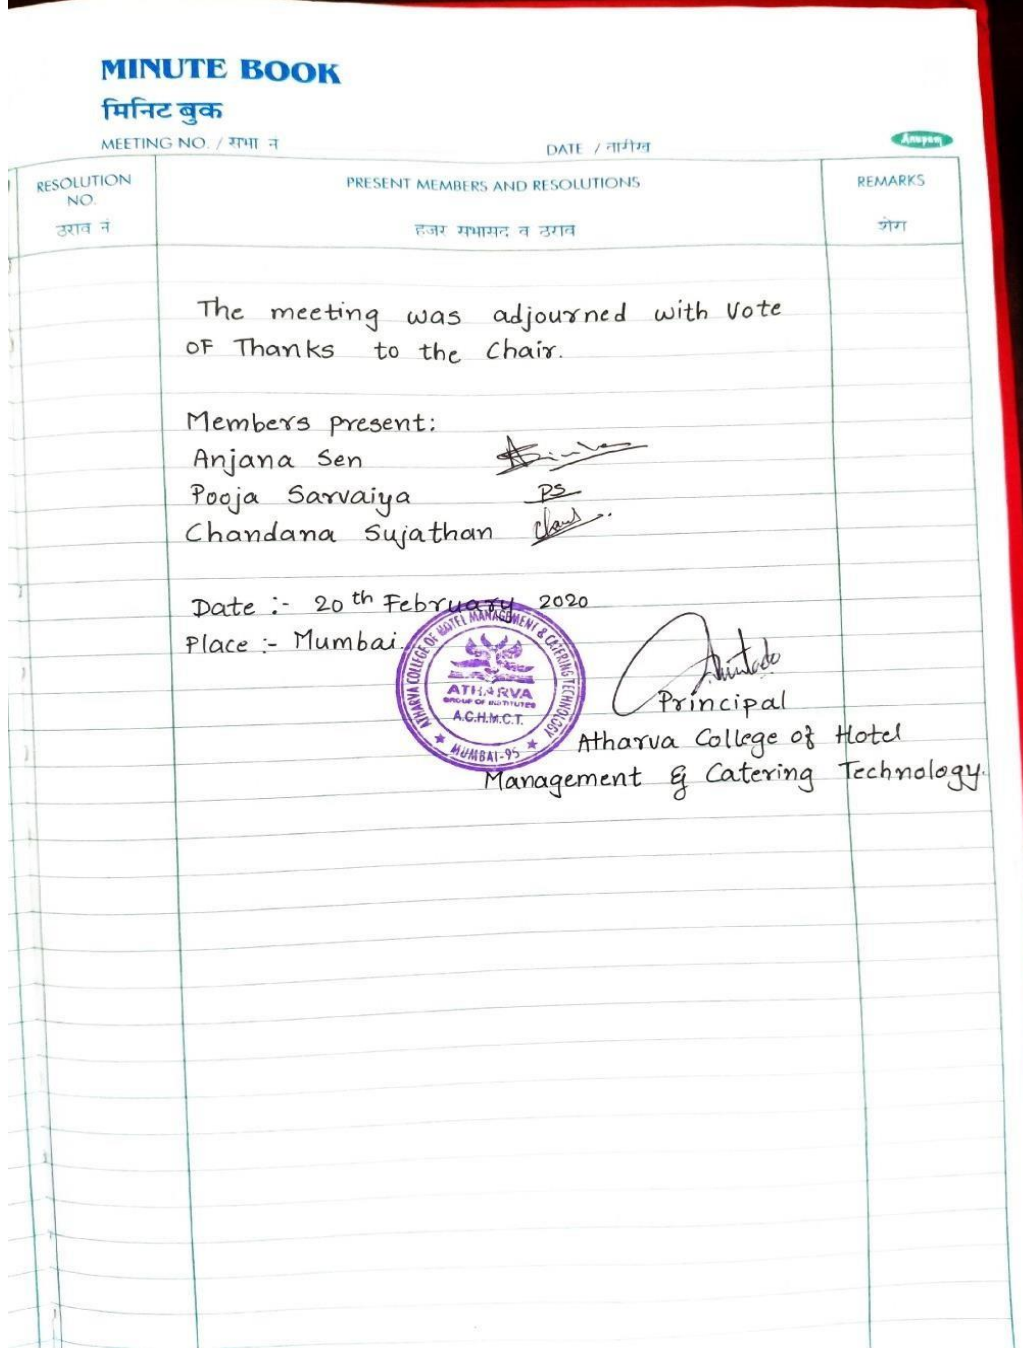 MINUTE BOOK
मिनिट बुक
MEETING NO. / सभा नं
DATE / तारीख
Anupam
RESOLUTION NO.
ठराव नं
PRESENT MEMBERS AND RESOLUTIONS
हजर सभासद व ठराव
REMARKS
शेरा
The meeting was adjourned with Vote
OF Thanks to the Chair.
Members present:
Anjana Sen
Pooja Sarvaiya PS
Chandana Sujathan
Date :- 20th February 2020
Place :- Mumbai.
ATHARVA COLLEGE OF HOTEL MANAGEMENT & CATERING TECHNOLOGY
ATHARVA
GROUP OF INSTITUTES
A.C.H.M.C.T.
★ MUMBAI-95 ★
Principal
Atharva College of Hotel
Management & Catering Technology.